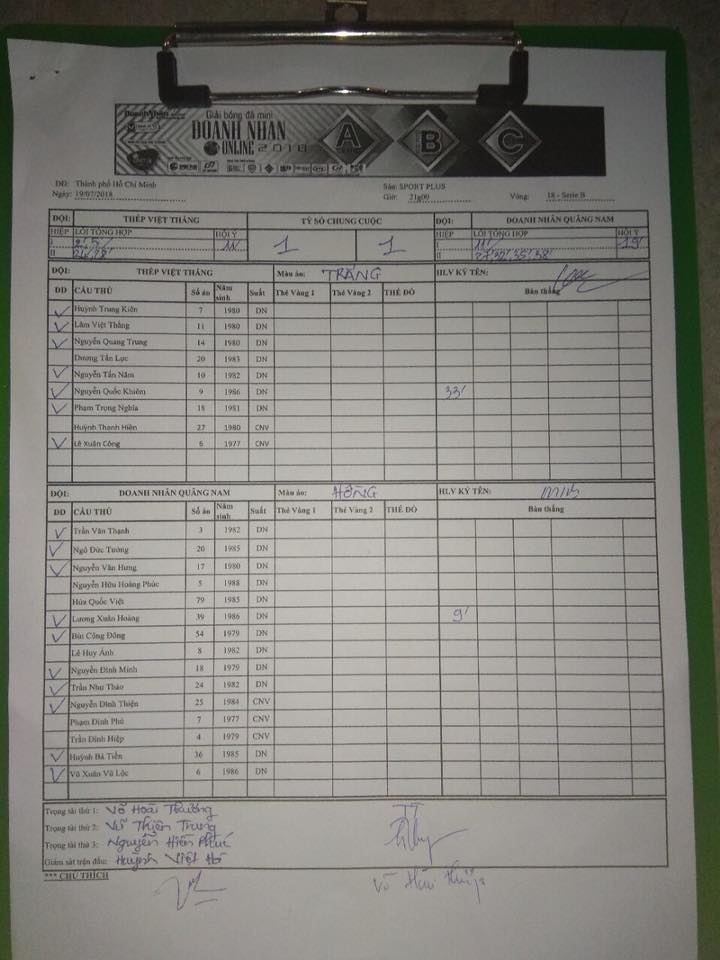 Giải bóng đá mini
DOANH NHÂN
ONLINE 2018
A B C
DĐ: Thành phố Hồ Chí Minh Sân: SPORT PLUS
Ngày: 19/07/2018 Giờ: 21g00 Vòng: 18 - Serie B
ĐỘI: THÉP VIỆT THẮNG TỶ SỐ CHUNG CUỘC ĐỘI: DOANH NHÂN QUẢNG NAM
HIỆP LỖI TỔNG HỢP HỘI Ý 1 1 HIỆP LỖI TỔNG HỢP HỘI Ý
I 2' 5' 11' I 11' 19'
II II 27' 32' 35' 38'
ĐỘI: THÉP VIỆT THẮNG Màu áo: TRẮNG HLV KÝ TÊN:
DD CẦU THỦ Số áo Năm sinh Suất Thẻ Vàng 1 Thẻ Vàng 2 THẺ ĐỎ Bàn thắng
✓ Huỳnh Trung Kiên 7 1980 DN
✓ Lâm Việt Thắng 11 1980 DN
✓ Nguyễn Quang Trung 14 1980 DN
Dương Tấn Lực 20 1983 DN
✓ Nguyễn Tấn Năm 10 1982 DN
✓ Nguyễn Quốc Khiêm 9 1986 DN 33'
✓ Phạm Trọng Nghĩa 18 1981 DN
Huỳnh Thanh Hiền 27 1980 CNV
✓ Lê Xuân Công 6 1977 CNV
ĐỘI: DOANH NHÂN QUẢNG NAM Màu áo: HỒNG HLV KÝ TÊN:
DD CẦU THỦ Số áo Năm sinh Suất Thẻ Vàng 1 Thẻ Vàng 2 THẺ ĐỎ Bàn thắng
✓ Trần Văn Thạnh 3 1982 DN
✓ Ngô Đức Tường 20 1985 DN
✓ Nguyễn Văn Hưng 17 1980 DN
Nguyễn Hữu Hoàng Phúc 5 1988 DN
Hứa Quốc Việt 79 1985 DN
✓ Lương Xuân Hoàng 39 1986 DN 9'
✓ Bùi Công Đông 54 1979 DN
Lê Huy Ánh 8 1982 DN
✓ Nguyễn Đình Minh 18 1979 DN
✓ Trần Như Thảo 24 1982 DN
✓ Nguyễn Đình Thiện 25 1984 CNV
Phạm Đình Phú 7 1977 CNV
Trần Đình Hiệp 4 1979 CNV
✓ Huỳnh Bá Tiễn 36 1985 DN
✓ Võ Xuân Vũ Lộc 6 1986 DN
Trọng tài thứ 1: Võ Hoài Thương
Trọng tài thứ 2: Vũ Thiện Trung
Trọng tài thứ 3: Nguyễn Hiền Phúc
Giám sát trận đấu: Huỳnh Việt Hồ
*** CHÚ THÍCH